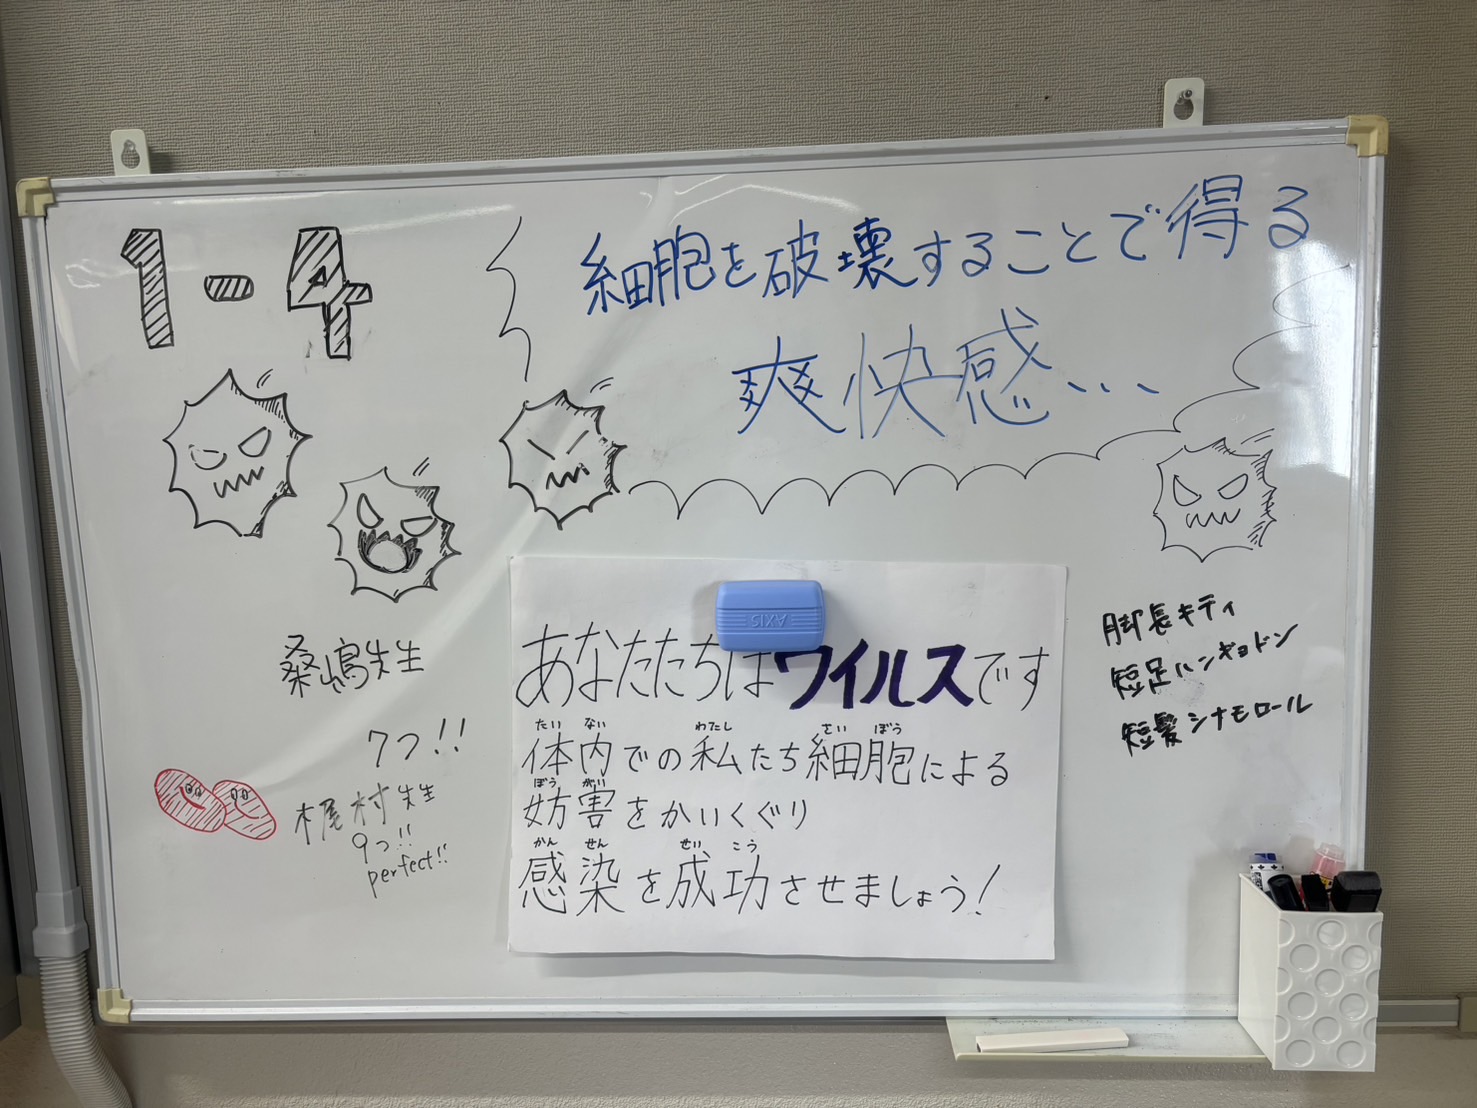 1-4
細胞を破壊することで得る
爽快感...
桑嶋先生
7つ!!
梶村先生
9つ!!
perfect!!
AXIS
あなたたちはウイルスです
たい ない わたし さい ぼう
体内での私たち細胞による
ぼう がい
妨害をかいくぐり
かん せん せい こう
感染を成功させましょう!
脚長キティ
短足ハンギョドン
短髪シナモロール